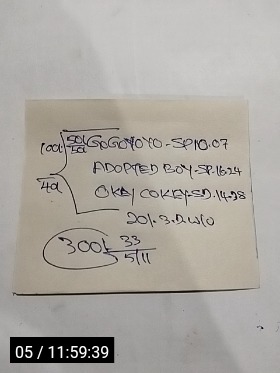 100/ 50/50 GOGOYOYO-SP10.07
ADOPTED BOY-SP.1624
40/ OKEY COKEY-SD.14.98
20/.3.D.W/O
300/ 33
5/11
05 / 11:59:39